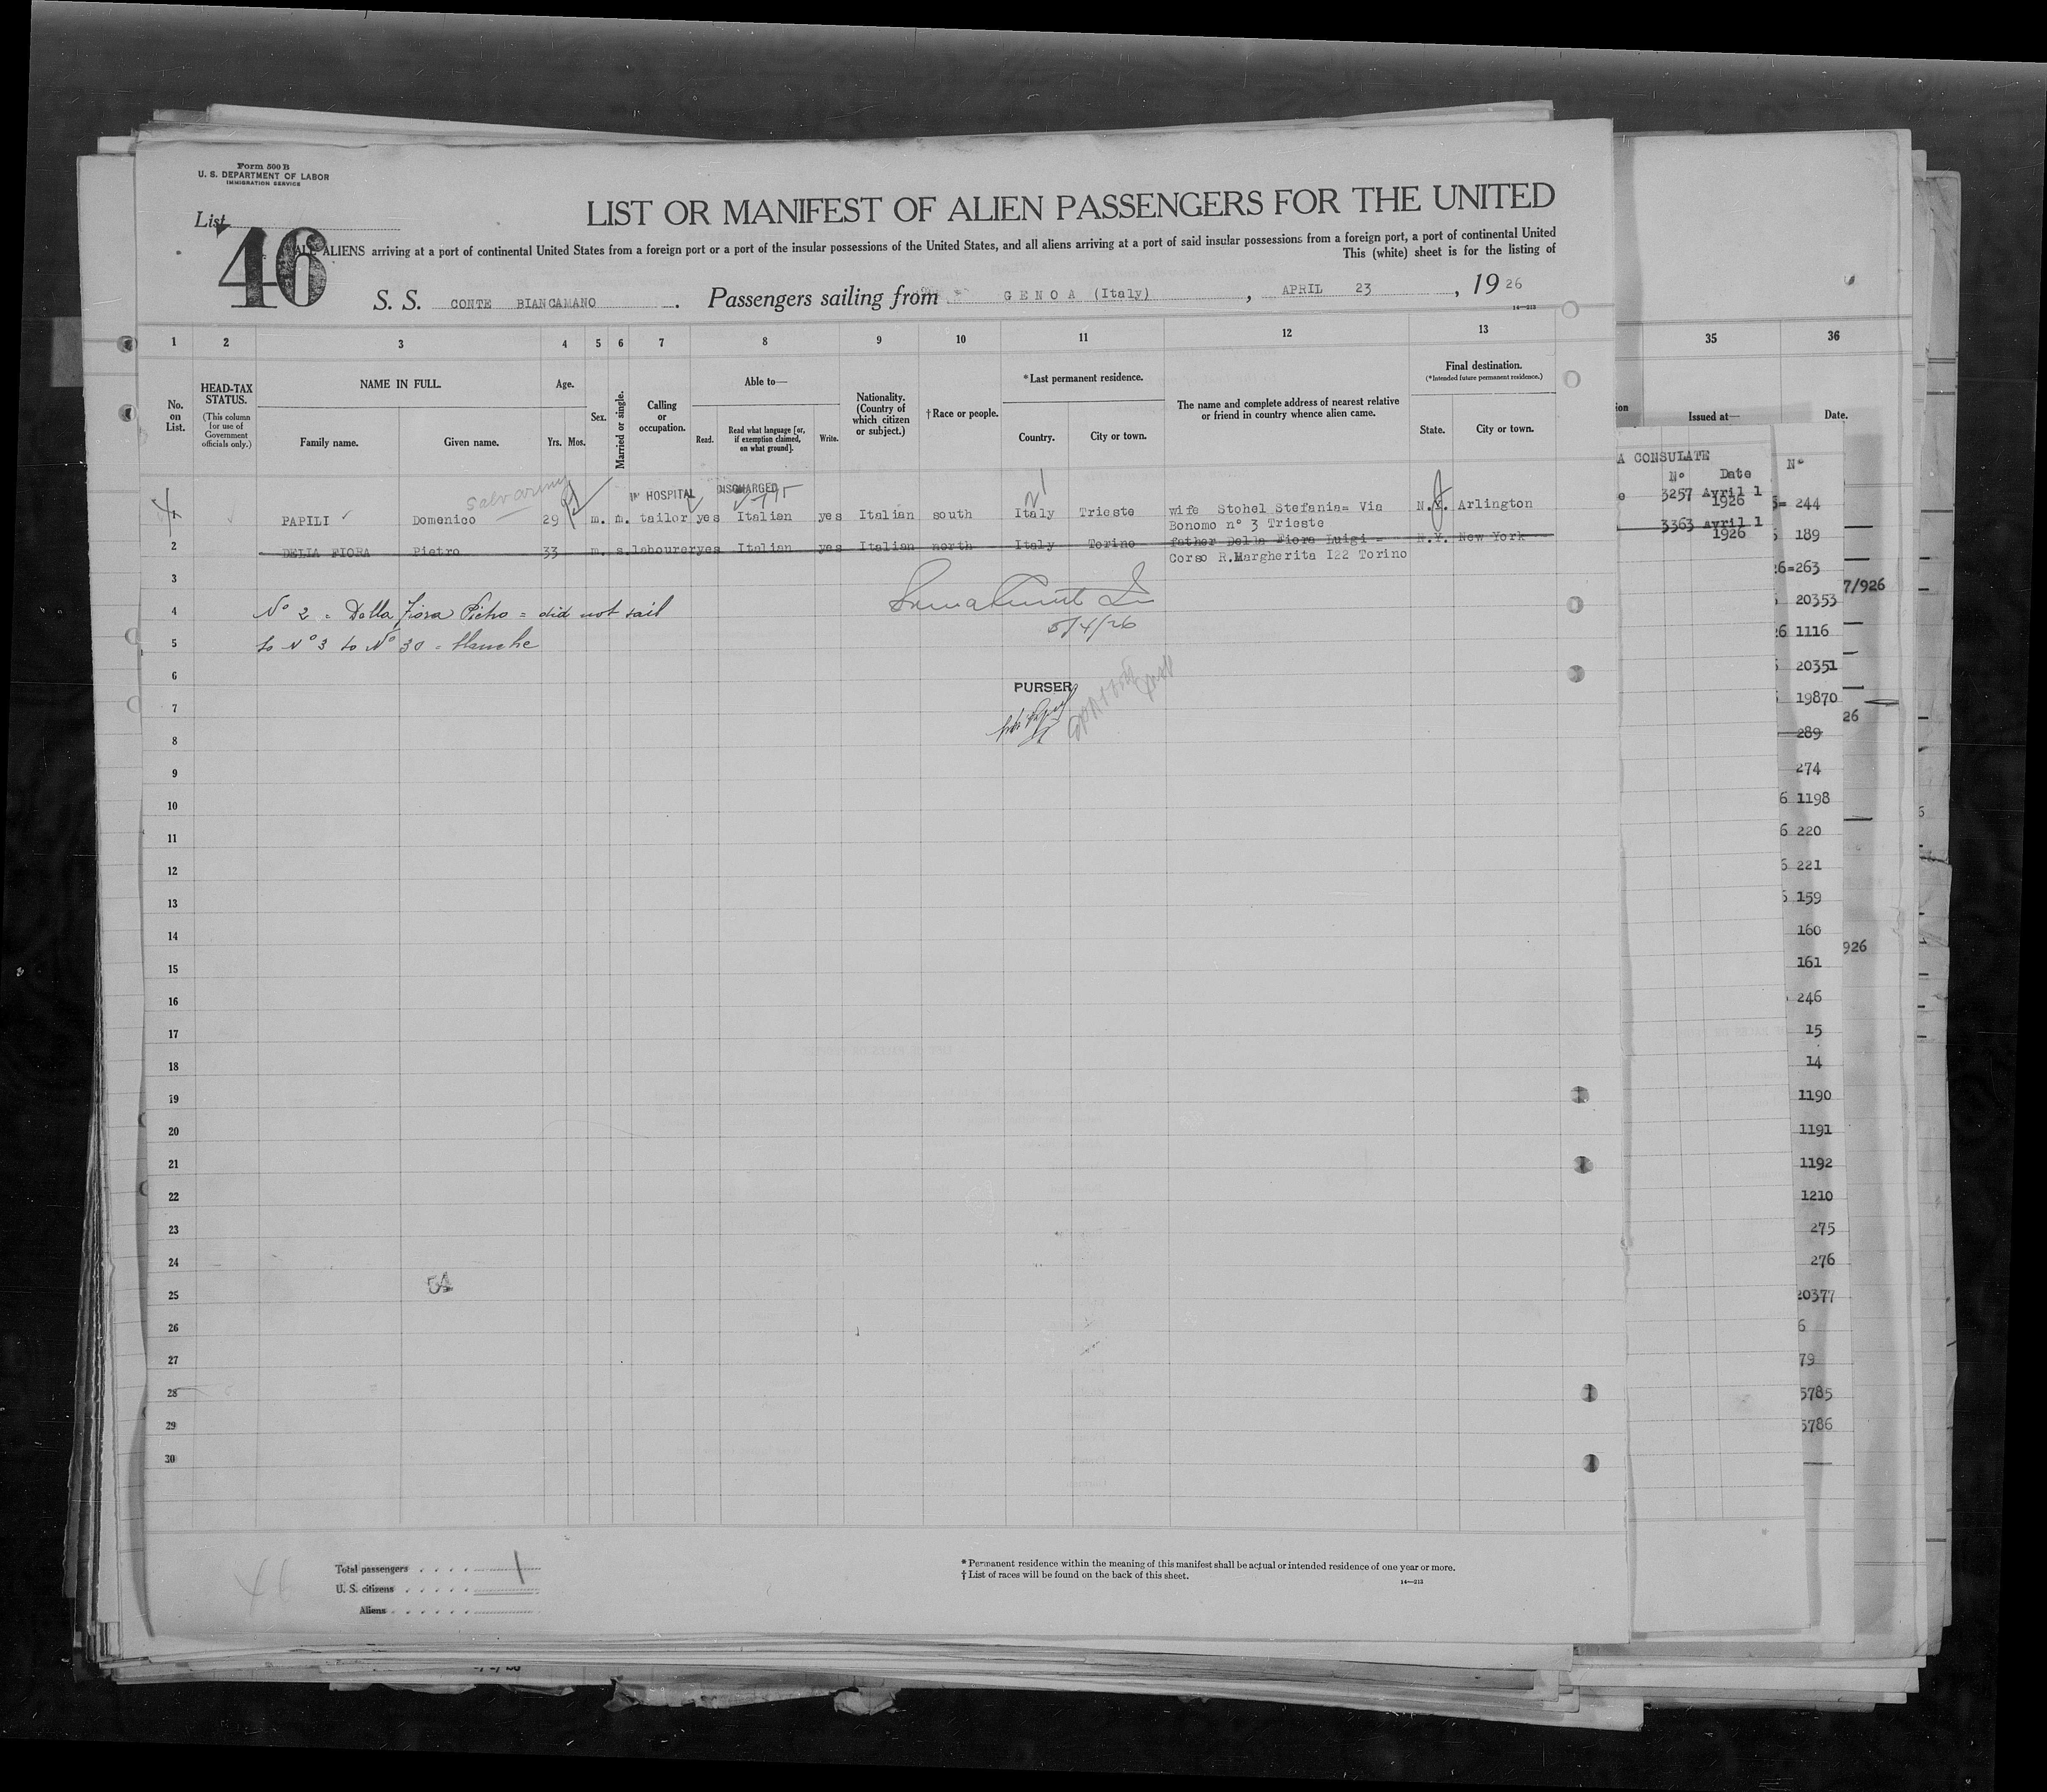 Form 500 B
U. S. DEPARTMENT OF LABOR
IMMIGRATION SERVICE
List
46
LIST OR MANIFEST OF ALIEN PASSENGERS FOR THE UNITED
ALL ALIENS arriving at a port of continental United States from a foreign port or a port of the insular possessions of the United States, and all aliens arriving at a port of said insular possessions from a foreign port, a port of continental United
This (white) sheet is for the listing of
S. S. CONTE BIANCAMANO . Passengers sailing from GENOA (Italy) , APRIL 23 , 19 26
14—213
1 2 3 4 5 6 7 8 9 10 11 12 13 35 36
No. on List.
HEAD-TAX STATUS.
(This column for use of Government officials only.)
NAME IN FULL.
Family name. Given name.
Age.
Yrs. Mos.
Sex.
Married or single.
Calling or occupation.
Able to—
Read. Read what language [or, if exemption claimed, on what ground]. Write.
Nationality. (Country of which citizen or subject.)
† Race or people.
* Last permanent residence.
Country. City or town.
The name and complete address of nearest relative or friend in country whence alien came.
Final destination.
(* Intended future permanent residence.)
State. City or town.
Issued at—
Date.
IN HOSPITAL DISCHARGED
PAPILI Domenico 29 m. m. tailor yes Italian yes Italian south Italy Trieste wife Stohel Stefania= Via N.Y. Arlington
Bonomo n° 3 Trieste
2 DELLA FIORA Pietro 33 m. s. labourer yes Italian yes Italian north Italy Torino father Della Fiora Luigi = N.Y. New York
Corso R.Margherita I22 Torino
3
4 N° 2 = Della Fiora Pietro = did not sail
5/4/26
5 to N° 3 to N° 30 = blanche
6
PURSER
7
8
9
10
11
12
13
14
15
16
17
18
19
20
21
22
23
24
25
26
27
28
29
30
A CONSULATE
N° Date
3257 Avril 1
1926
3363 Avril 1
1926
N°
244
189
263
7/926
20353
1116
20351
19870
26
289
274
1198
220
221
159
160
926
161
246
15
14
1190
1191
1192
1210
275
276
20377
6
79
5785
5786
Total passengers 1
U. S. citizens
Aliens
* Permanent residence within the meaning of this manifest shall be actual or intended residence of one year or more.
† List of races will be found on the back of this sheet.
14—213